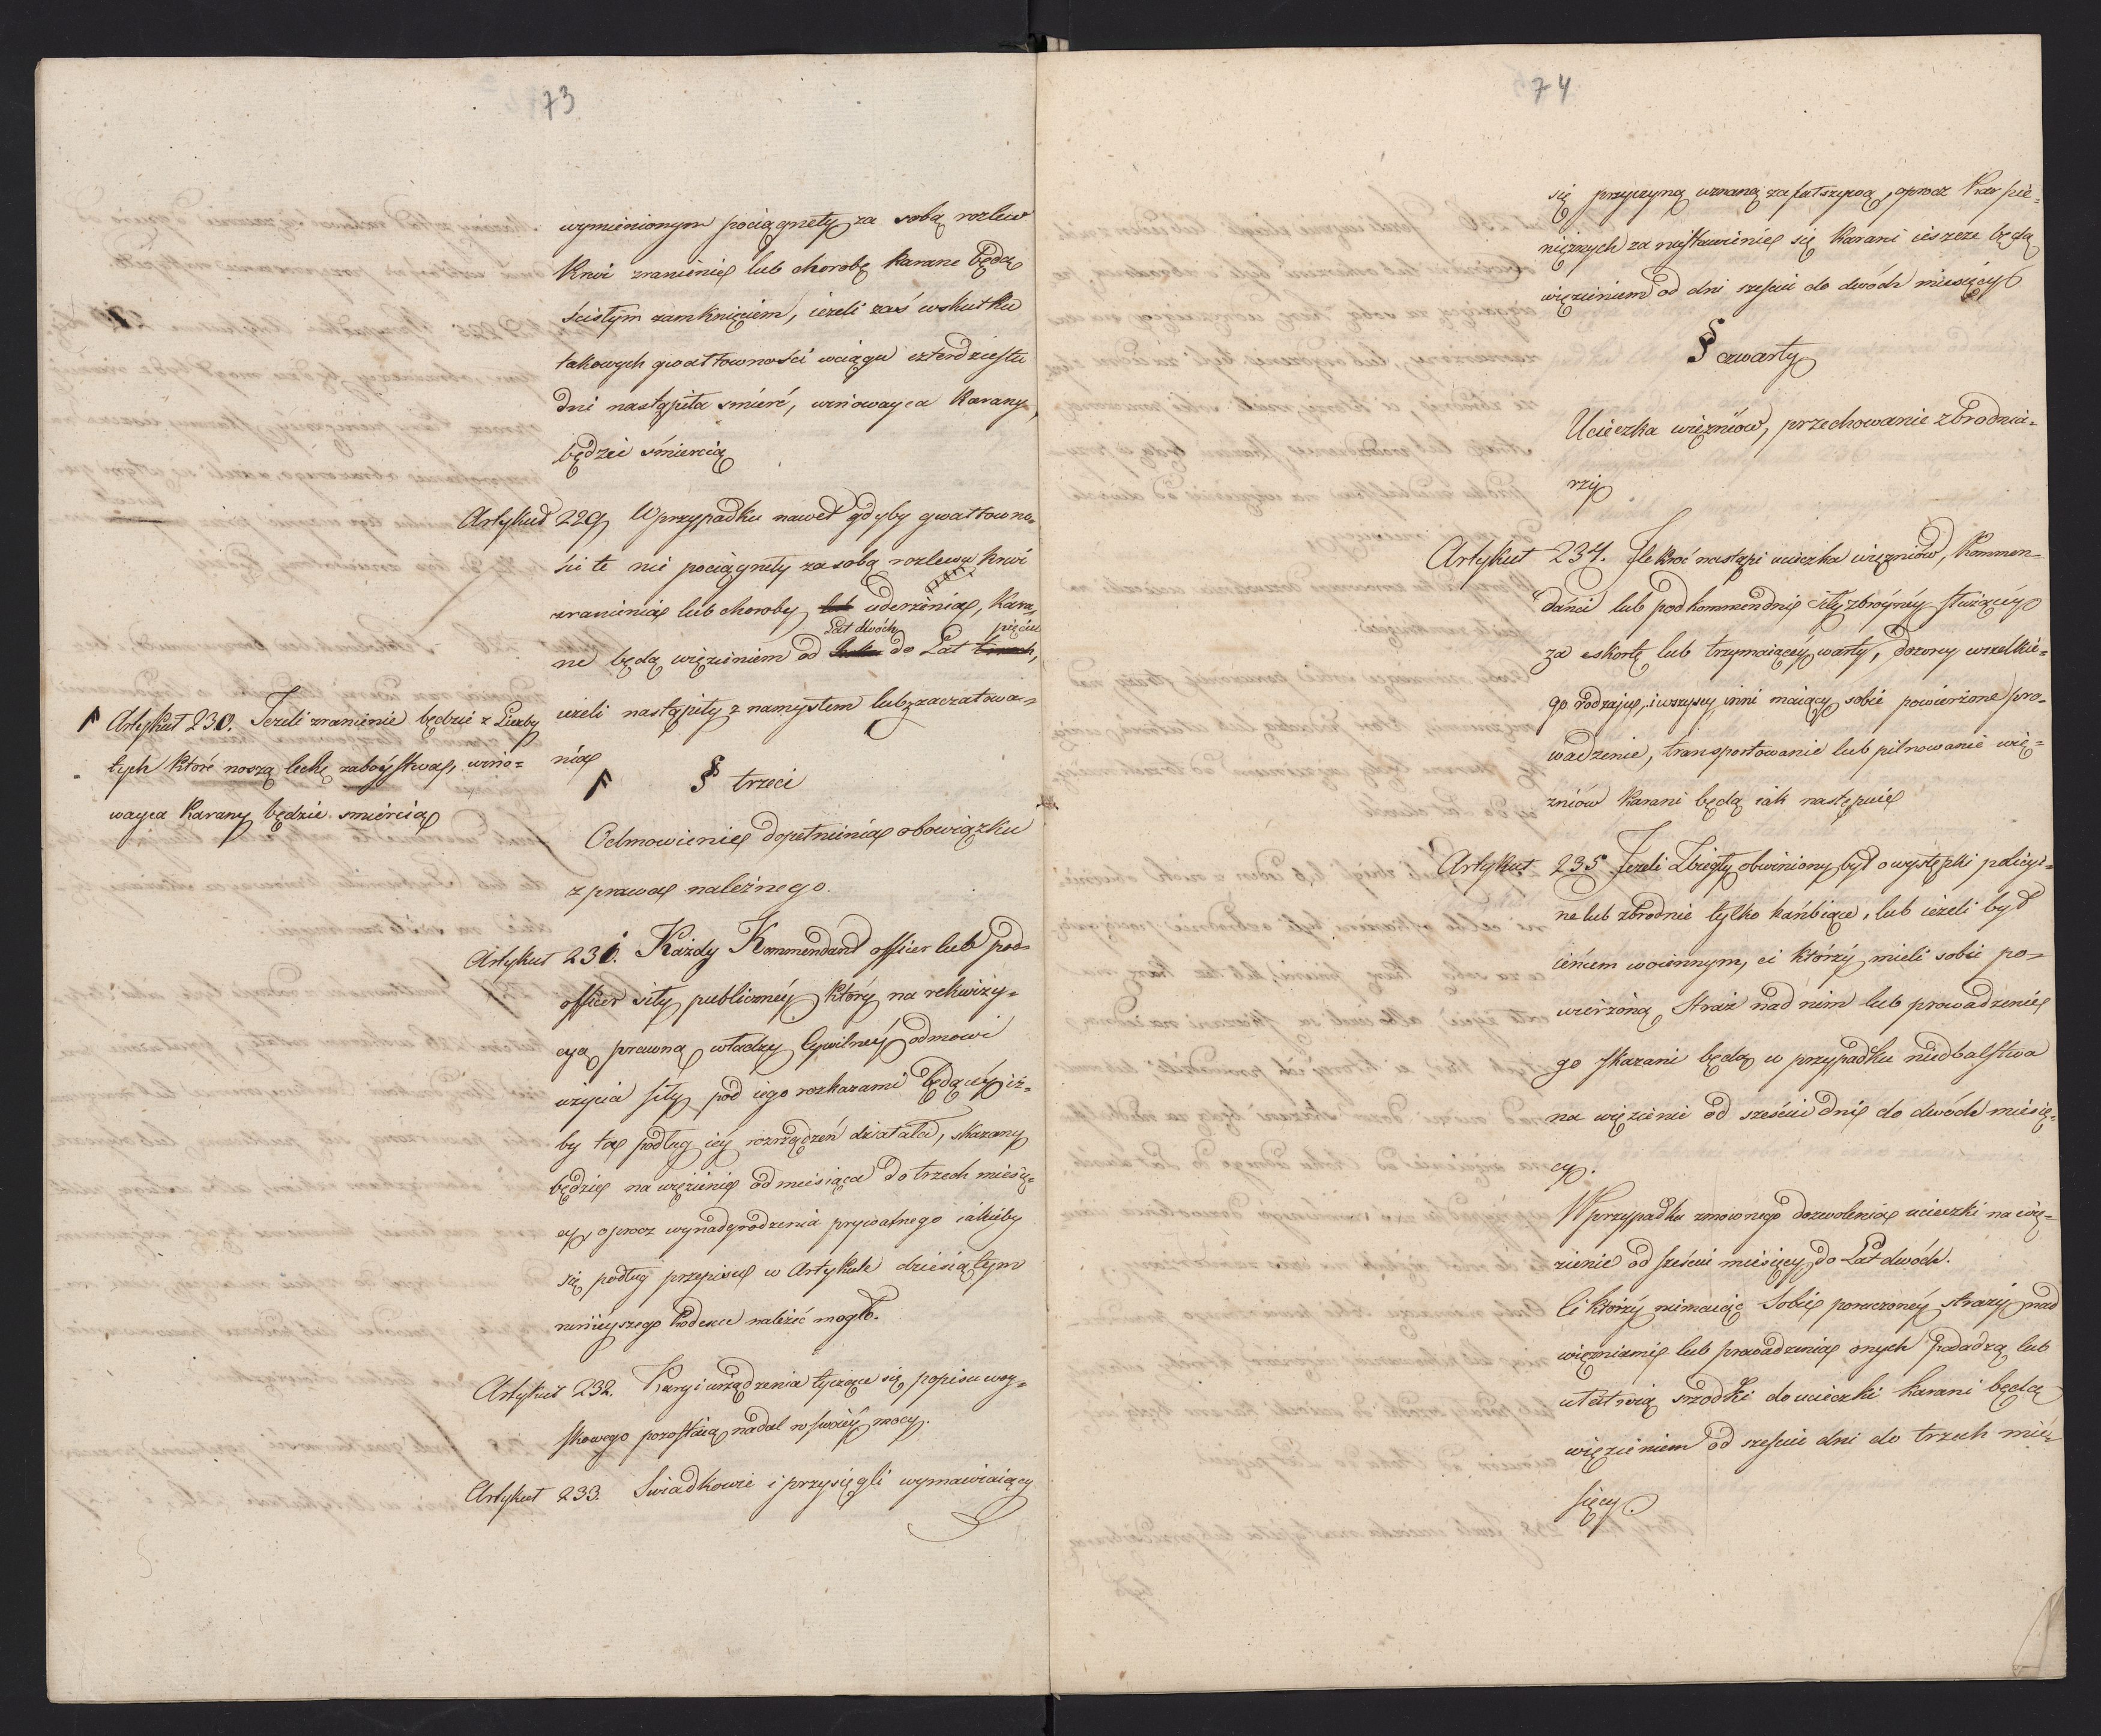 73
wymienionym pociągnęły za sobą rozlew
Krwi zranienie lub chorobę karane będą
ścisłym zamknięciem, ieżeli zaś wskutku
takowych gwałtowności wciągu czterdziestu
dni nastąpiła smierć, winowayca karany
będzie śmiercią
Artykuł 229 W przypadku nawet gdyby gwałtowno=
ści te nie pociągnęły za sobą rozlewu krwi
zranienia lub choroby lub uderzenia, kara=
Lat dwóch pięciu
ne będą więzieniem od do Lat trzech,
ieżeli nastąpiły z namysłem lub zaczatowa=
nia
Artykuł 230. Jeżeli zranienie będzie z Liczby
tych które noszą lechę zabóystwa, wino=
wayca karany będzie smiercią
§ trzeci
Odmowienie dopełnienia obowiązku
z prawa należnego.
Artykuł 231. Każdy Kommendant officer lub pod=
officer siły publiczney który na rekwizy=
cyą prawną władzy Cywilney odmowi
użycia siły pod iego rozkazami będącey iż=
by ta podług iey rozrządzeń działała, skazany
będzie na więzienie od miesiąca do trzech miesię=
cy, oprocz wynadgrodzenia prywatnego iakieby
się podług przepisu w Artykule dziesiątym
ninieyszego Kodexu należeć mogło.
Artykuł 232. Kary i urządzenia tyczące się popisu woy=
skowego pozostaią nadal w swoiey mocy.
Artykuł 233. Swiadkowie i przysięgli wymawiaiący
74
się przyczyną uznaną za fałszywą, oprocz Kar pie=
niężnych za niestawienie się karani ieszcze będą
więzieniem od dni sześciu do dwóch miesięcy
§ czwarty
Ucieczka więźniów, przechowanie zbrodnia=
rzy
Artykuł 234. Ilekroć nastąpi ucieczka więzniów, Kommen=
danci lub podkommendni siły zbroyney służącey
za eskortę lub trzymaiącey warty, dozorcy wszelkie=
go rodzaju, i wszyscy inni maiący sobie powierzone pro=
wadzenie, transportowanie lub pilnowanie wię=
zniów karani będą iak następuie
Artykuł 235 Jeżeli Zbiegły obwiniony był o występki policyi=
ne lub zbrodnie tylko hańbiące, lub ieżeli był
ieńcem woiennym, ci którzy mieli sobie po=
wierzoną straż nad nim lub prowadzenie
go skazani będą w przypadku niedbalstwa
na więzienie od sześciu dni do dwóch miesię=
cy.
W przypadku zmownego dozwolenia ucieczki na wię=
zienie od sześciu miesięcy do Lat dwóch.
Ci którzy niemaiąc Sobie poruczoney straży nad
więzniami lub prowadzenia onych podadzą lub
ułatwią srzodki do ucieczki karani będą
więzieniem od sześciu dni do trzech mie=
sięcy.